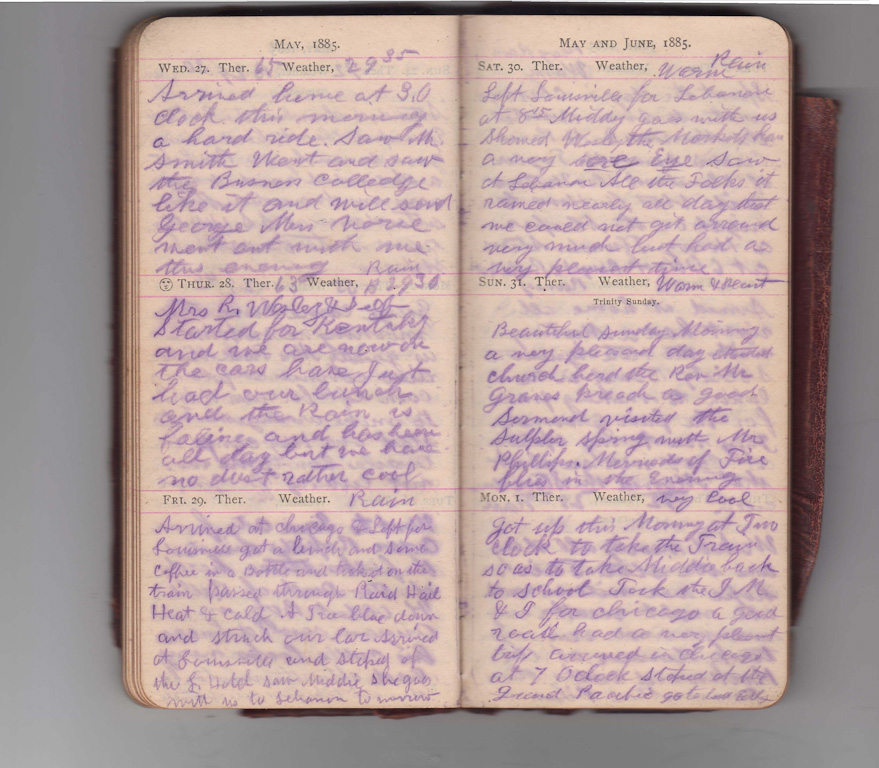 MAY, 1885.
WED. 27. Ther. 65 Weather, 29 35
Arrived home at 3,0
clock this morning
a hard ride. Saw Mr
Smith Went and saw
the Busness Colledge
like it and will send
George Miss Norse
went out with me
this enening Rain
THUR. 28. Ther. 63 Weather, 29 30
Mrs R. Wesley & Self
Started for Kentuky
and we are now on
the cars have Just
had our lunch
and the Rain is
faling and has been
all day but we have
no dust rather cool
FRI. 29. Ther. Weather. Rain
Arrived at chicago & Left for
Louisville got a lunch and some
coffee in a Bottle and took on the
train passed through Raid Hail
Heat & cold A Tree blue down
and struck our Car Arrived
at Louisville and stoped at
the G. Hotel saw Middie She goes
with us to Lebanon to morrow
MAY AND JUNE, 1885.
SAT. 30. Ther. Weather, Warm Rain
Left Louisville for Lebanon
at 8 Middy goes with us
Showed Wesley the
a very sore Eye Saw
at Lebanon All the Folks it
rained nearly all day that
we could not git arround
very much but had a
very pleasant time
SUN. 31. Ther. Weather, Warm &
Trinity Sunday.
Beautiful Sunday Morning
a very pleasand day attended
church herd the Rev Mr
Graves preach a good
Sermond visited the
Sulpher Spring with Mr
Phillips. Meryads of Fire
flies in the Enening
MON. 1. Ther. Weather, very Cool
got up this Morning at Two
clock to take the Train
so as to take Middie back
to School Took the J M
& I for chicago a good
roade had a very plesent
trip arrived in chicago
at 7 Oclock stoped at the
Grand Pacific go to bed early